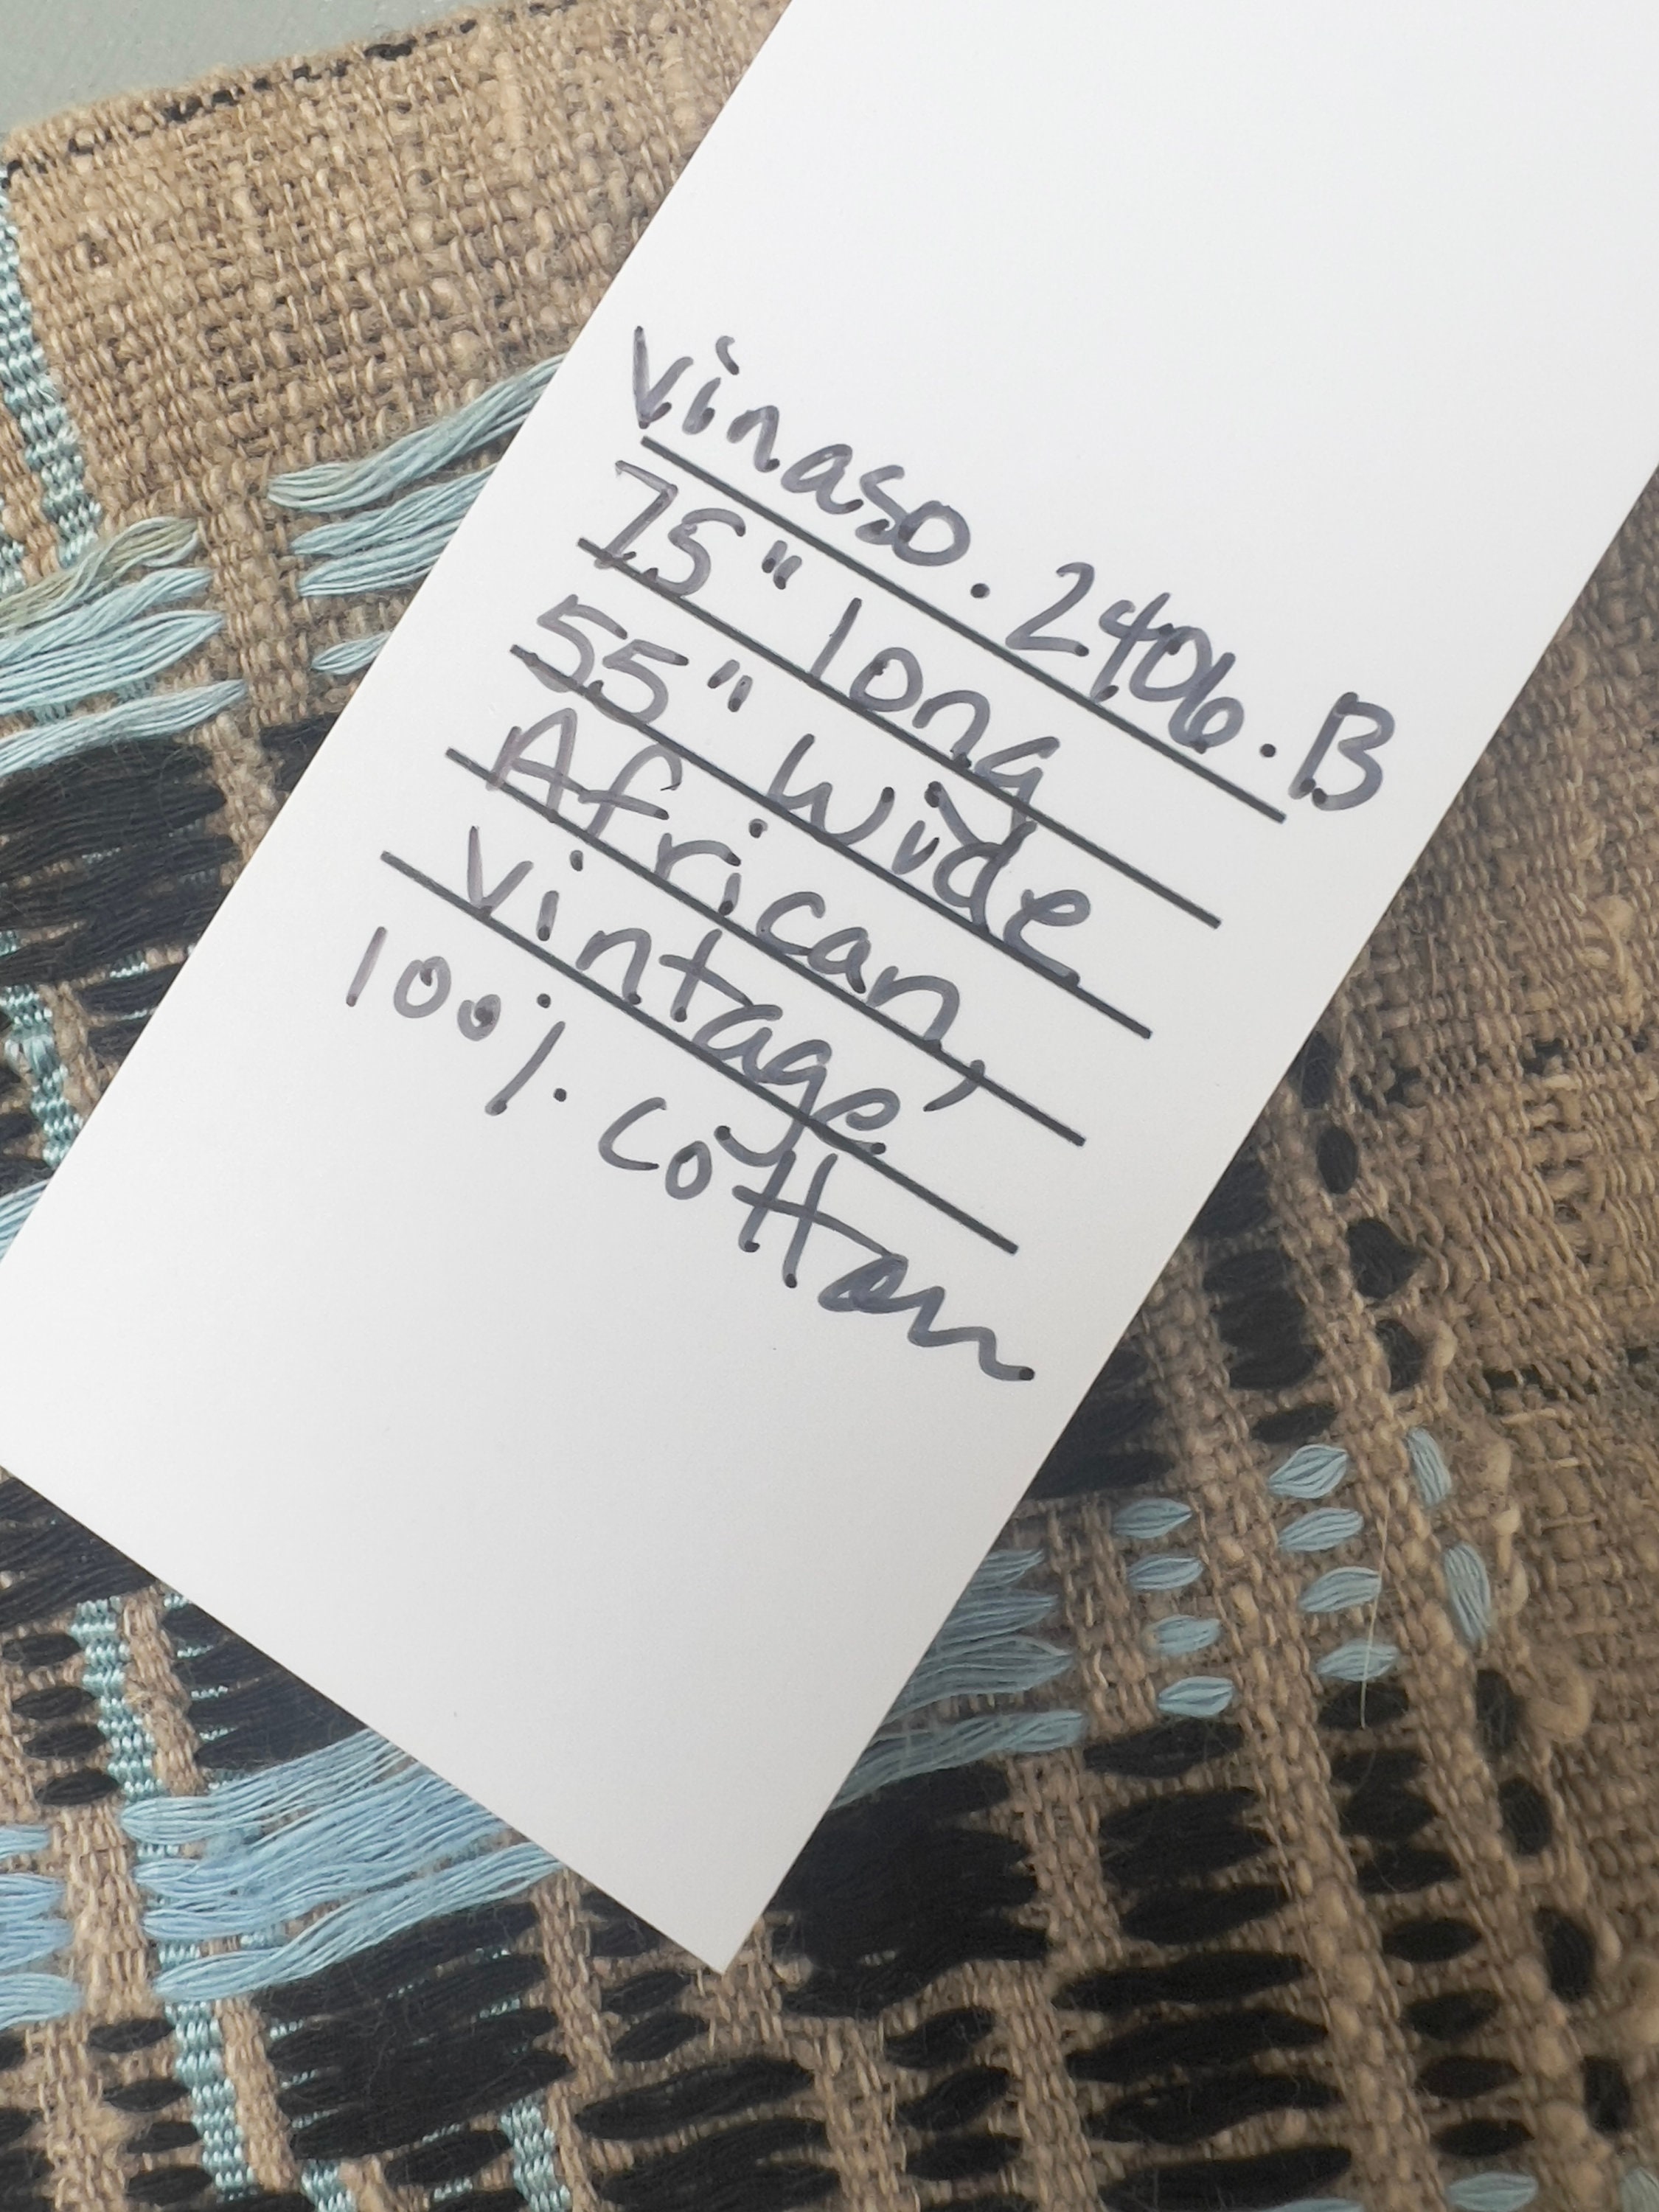 Vinaso.2406.B
75" long
55" wide
African,
Vintage,
100% cotton